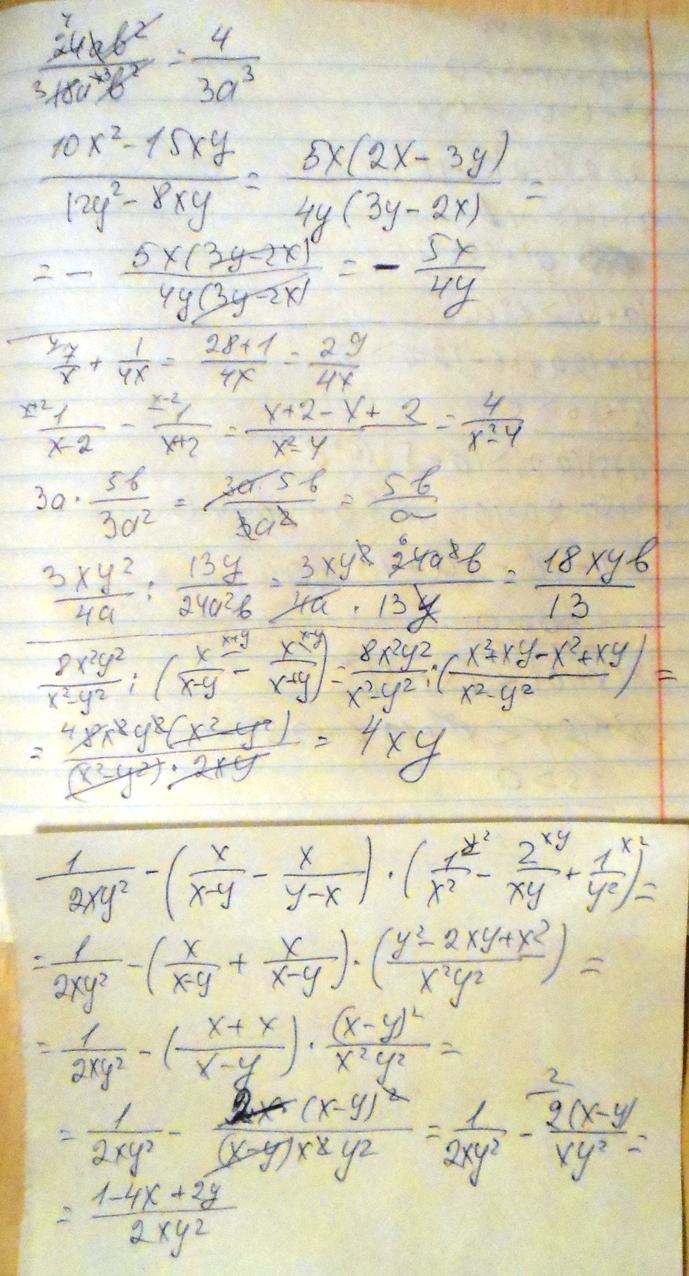 24ab²/18a⁴b² = 4/3a³
(10x² - 15xy)/(12y² - 8xy) = 5x(2x - 3y)/4y(3y - 2x) =
= - 5x(3y - 2x)/4y(3y - 2x) = - 5x/4y
7/x + 1/4x = (28+1)/4x = 29/4x
1/(x-2) - 1/(x+2) = (x+2-x+2)/(x²-4) = 4/(x²-4)
3a · 5b/3a² = 3a·5b/3a² = 5b/a
3xy²/4a : 13y/24a²b = 3xy² 24a²b/4a · 13y = 18xyb/13
8x²y²/(x²-y²) : (x/(x-y) - x/(x+y)) = 8x²y²/(x²-y²) : ((x²+xy-x²+xy)/(x²-y²)) =
= 8x²y²(x²-y²)/(x²-y²)·2xy = 4xy
1/2xy² - (x/(x-y) - x/(y-x)) · (1/x² - 2/xy + 1/y²) =
= 1/2xy² - (x/(x-y) + x/(x-y)) · ((y²-2xy+x²)/x²y²) =
= 1/2xy² - ((x+x)/(x-y)) · (x-y)²/x²y² =
= 1/2xy² - 2x·(x-y)²/(x-y)x²y² = 1/2xy² - 2(x-y)/xy² =
= (1-4x+2y)/2xy²